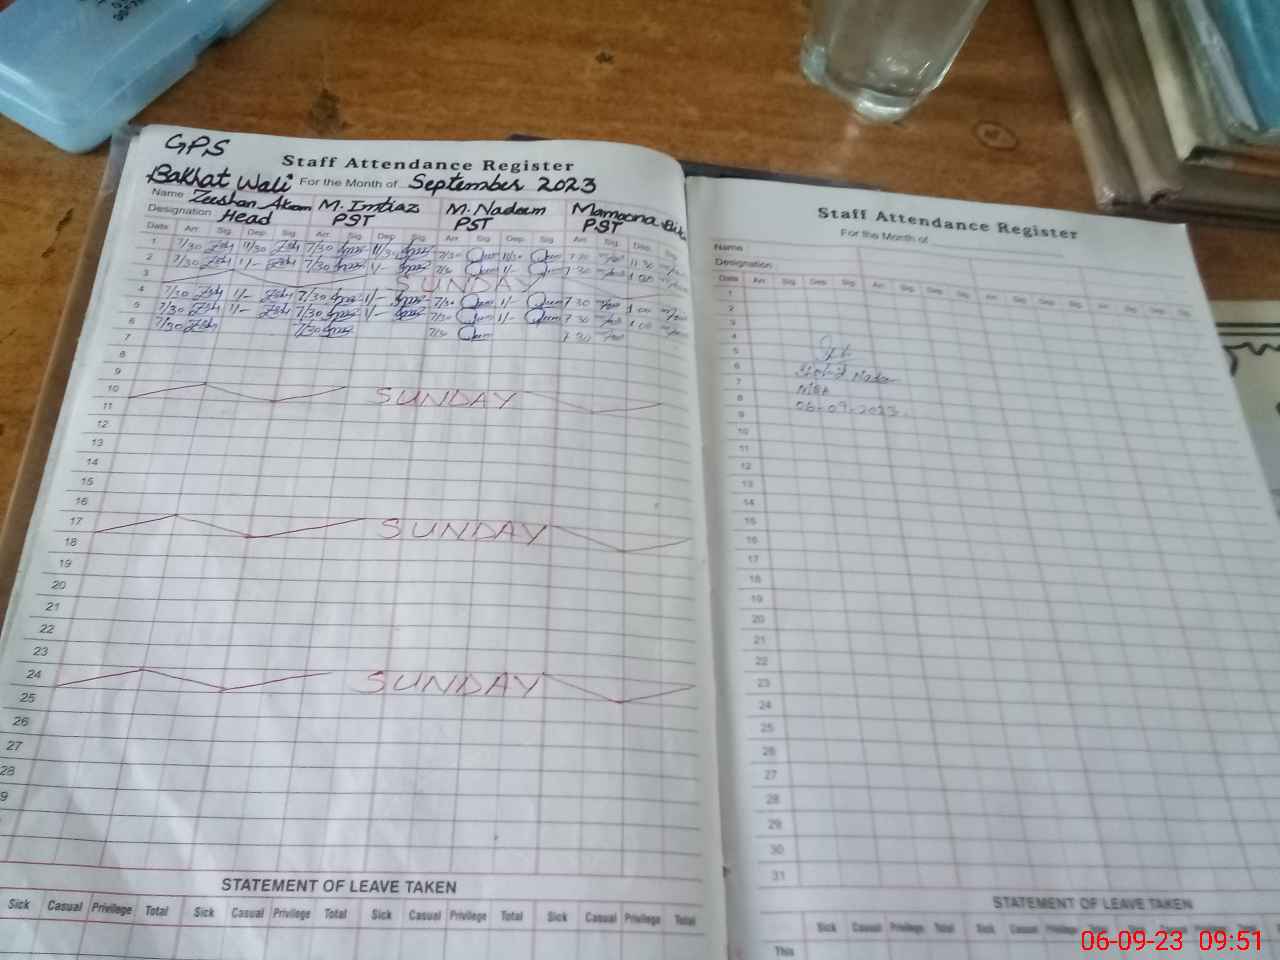 GPS
Staff Attendance Register
Bakhat Wali For the Month of September 2023
Name Zeeshan Akram M. Imtiaz M. Nadeem Mamoona Bibi
Designation Head PST PST PST
Date Arr. Sig. Dep. Sig. Arr. Sig. Dep. Sig. Arr. Sig. Dep. Sig. Arr. Sig. Dep. Sig.
1 7/30 11/30 7/30 11/30 7/30 11/30 7 30 11 30
2 7/30 1/- 7/30 1/- 7/30 1/- 7 30 1 00
3 SUNDAY
4 7/30 1/- 7/30 1/- 7/30 1/- 7 30 1 00
5 7/30 1/- 7/30 1/- 7/30 1/- 7 30 1 00
6 7/30 7/30 7/30 7 30
7
8
9
10 SUNDAY
11
12
13
14
15
16
17 SUNDAY
18
19
20
21
22
23
24 SUNDAY
25
26
27
28
9
STATEMENT OF LEAVE TAKEN
Sick Casual Privilege Total Sick Casual Privilege Total Sick Casual Privilege Total Sick Casual Privilege Total
Staff Attendance Register
For the Month of
Name
Designation
Date Arr. Sig. Dep. Sig. Arr. Sig. Dep. Sig. Arr. Sig. Dep. Sig.
1
2
3
4
5
6
7
8
9
06-09-2023
10
11
12
13
14
15
16
17
18
19
20
21
22
23
24
25
26
27
28
29
30
31
STATEMENT OF LEAVE TAKEN
Sick Casual Privilege Total Sick Casual Privilege Total
This
06-09-23 09:51